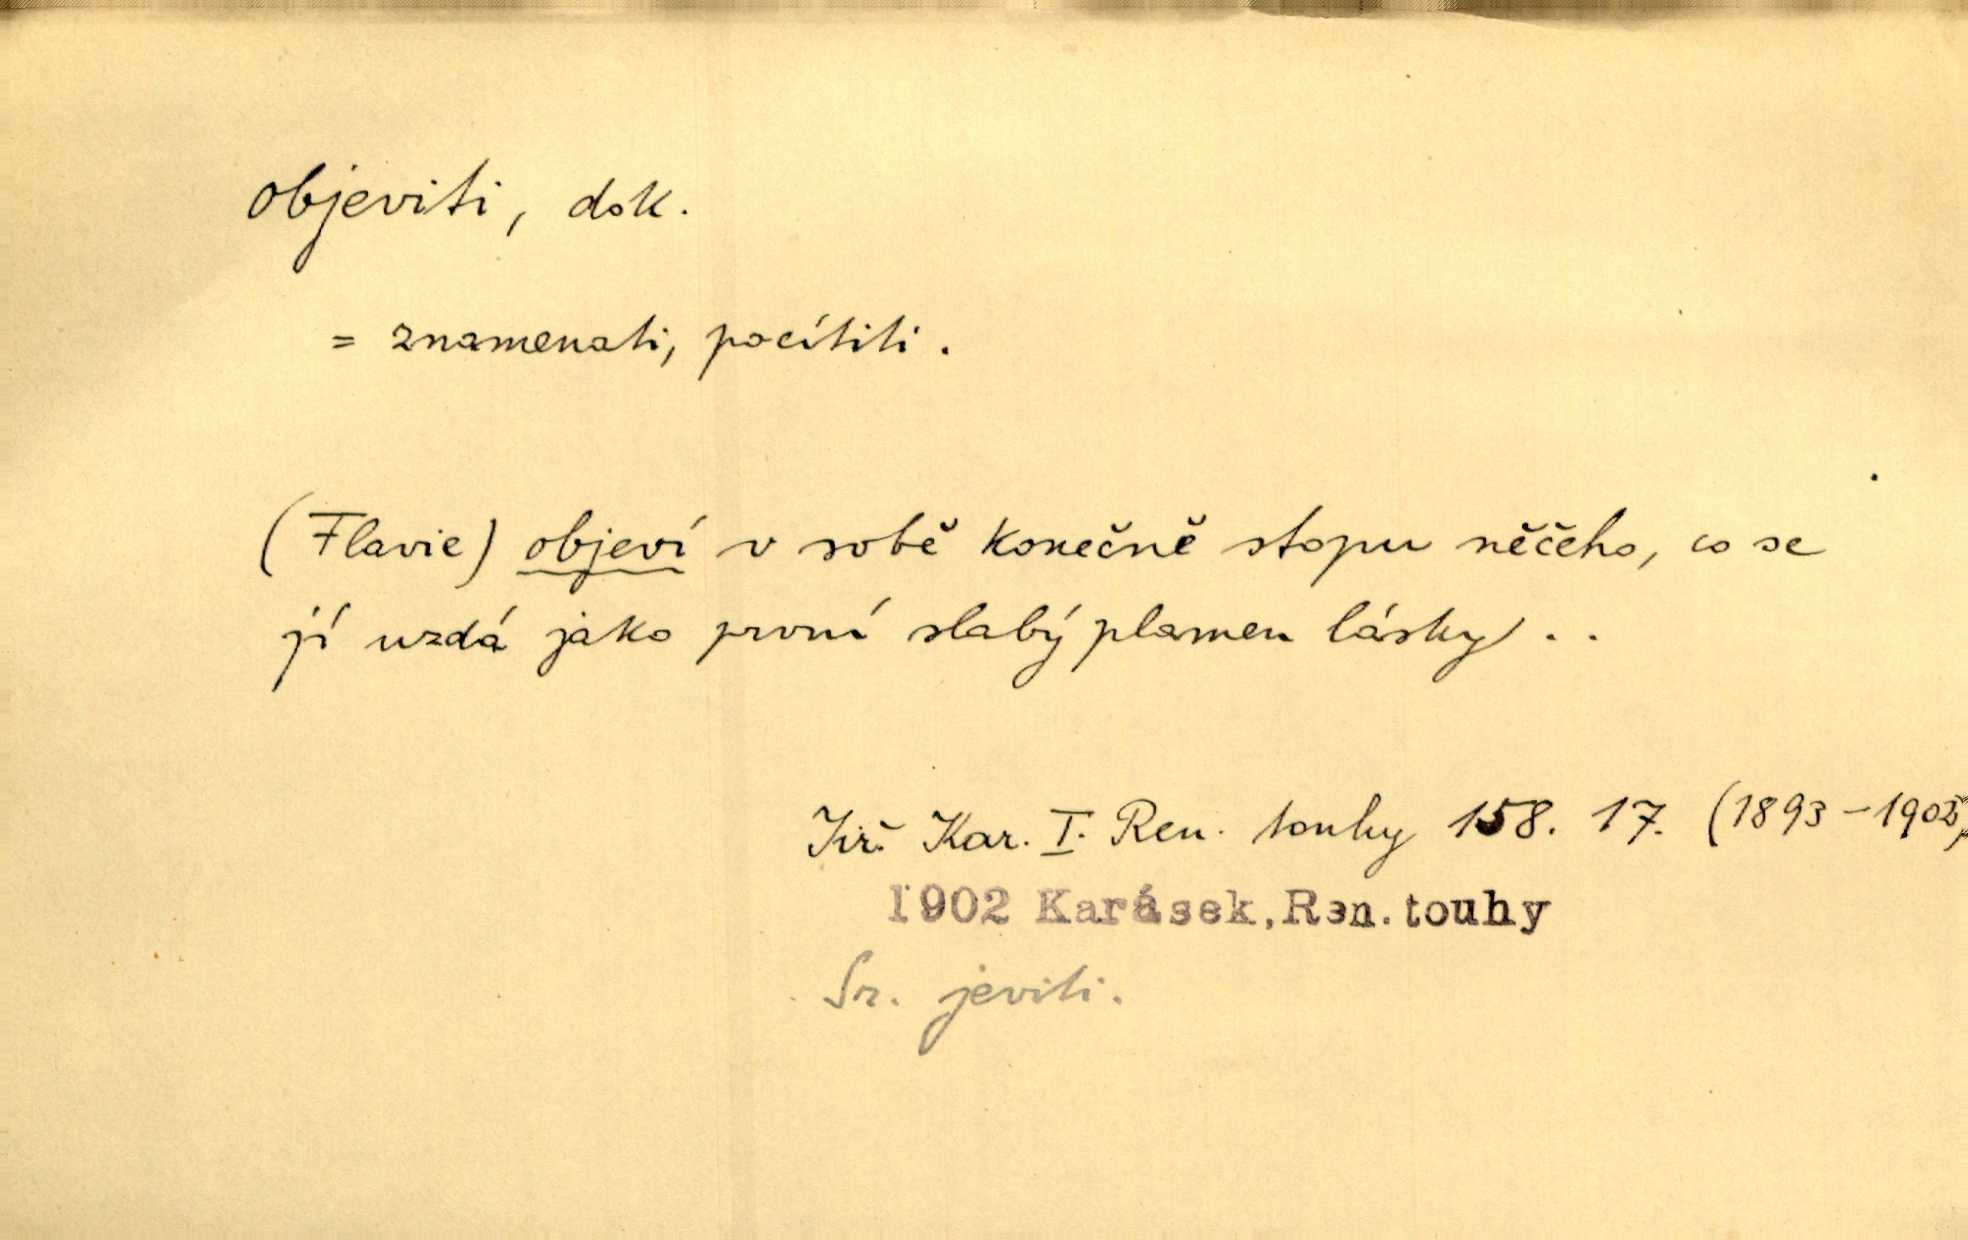 objeviti, dok.
= znamenati, pocítiti.
(Flavie) objeví v sobě konečně stopu něčeho, co se
jí uzdá jako první slabý plamen lásky . .
Jiř. Kar. I. Ren. touhy 158. 17. (1893–1902)
1902 Karásek, Ren. touhy
Sr. jeviti.